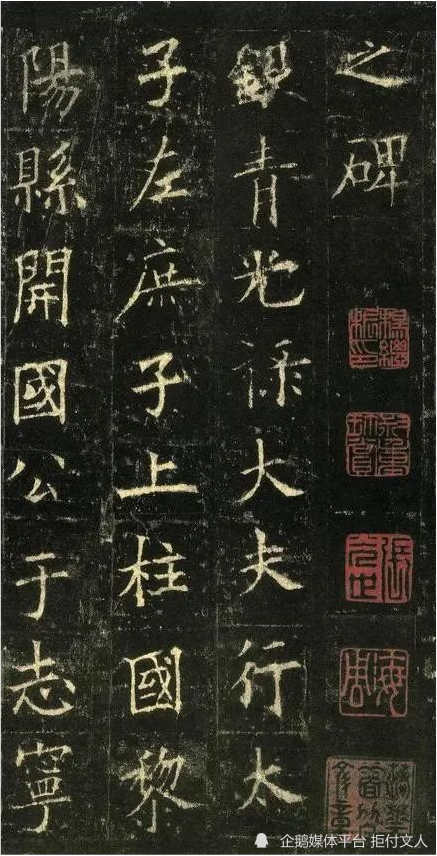 之碑
銀青光祿大夫行太
子左庶子上柱國黎
陽縣開國公于志寧
企鹅媒体平台 拒付文人